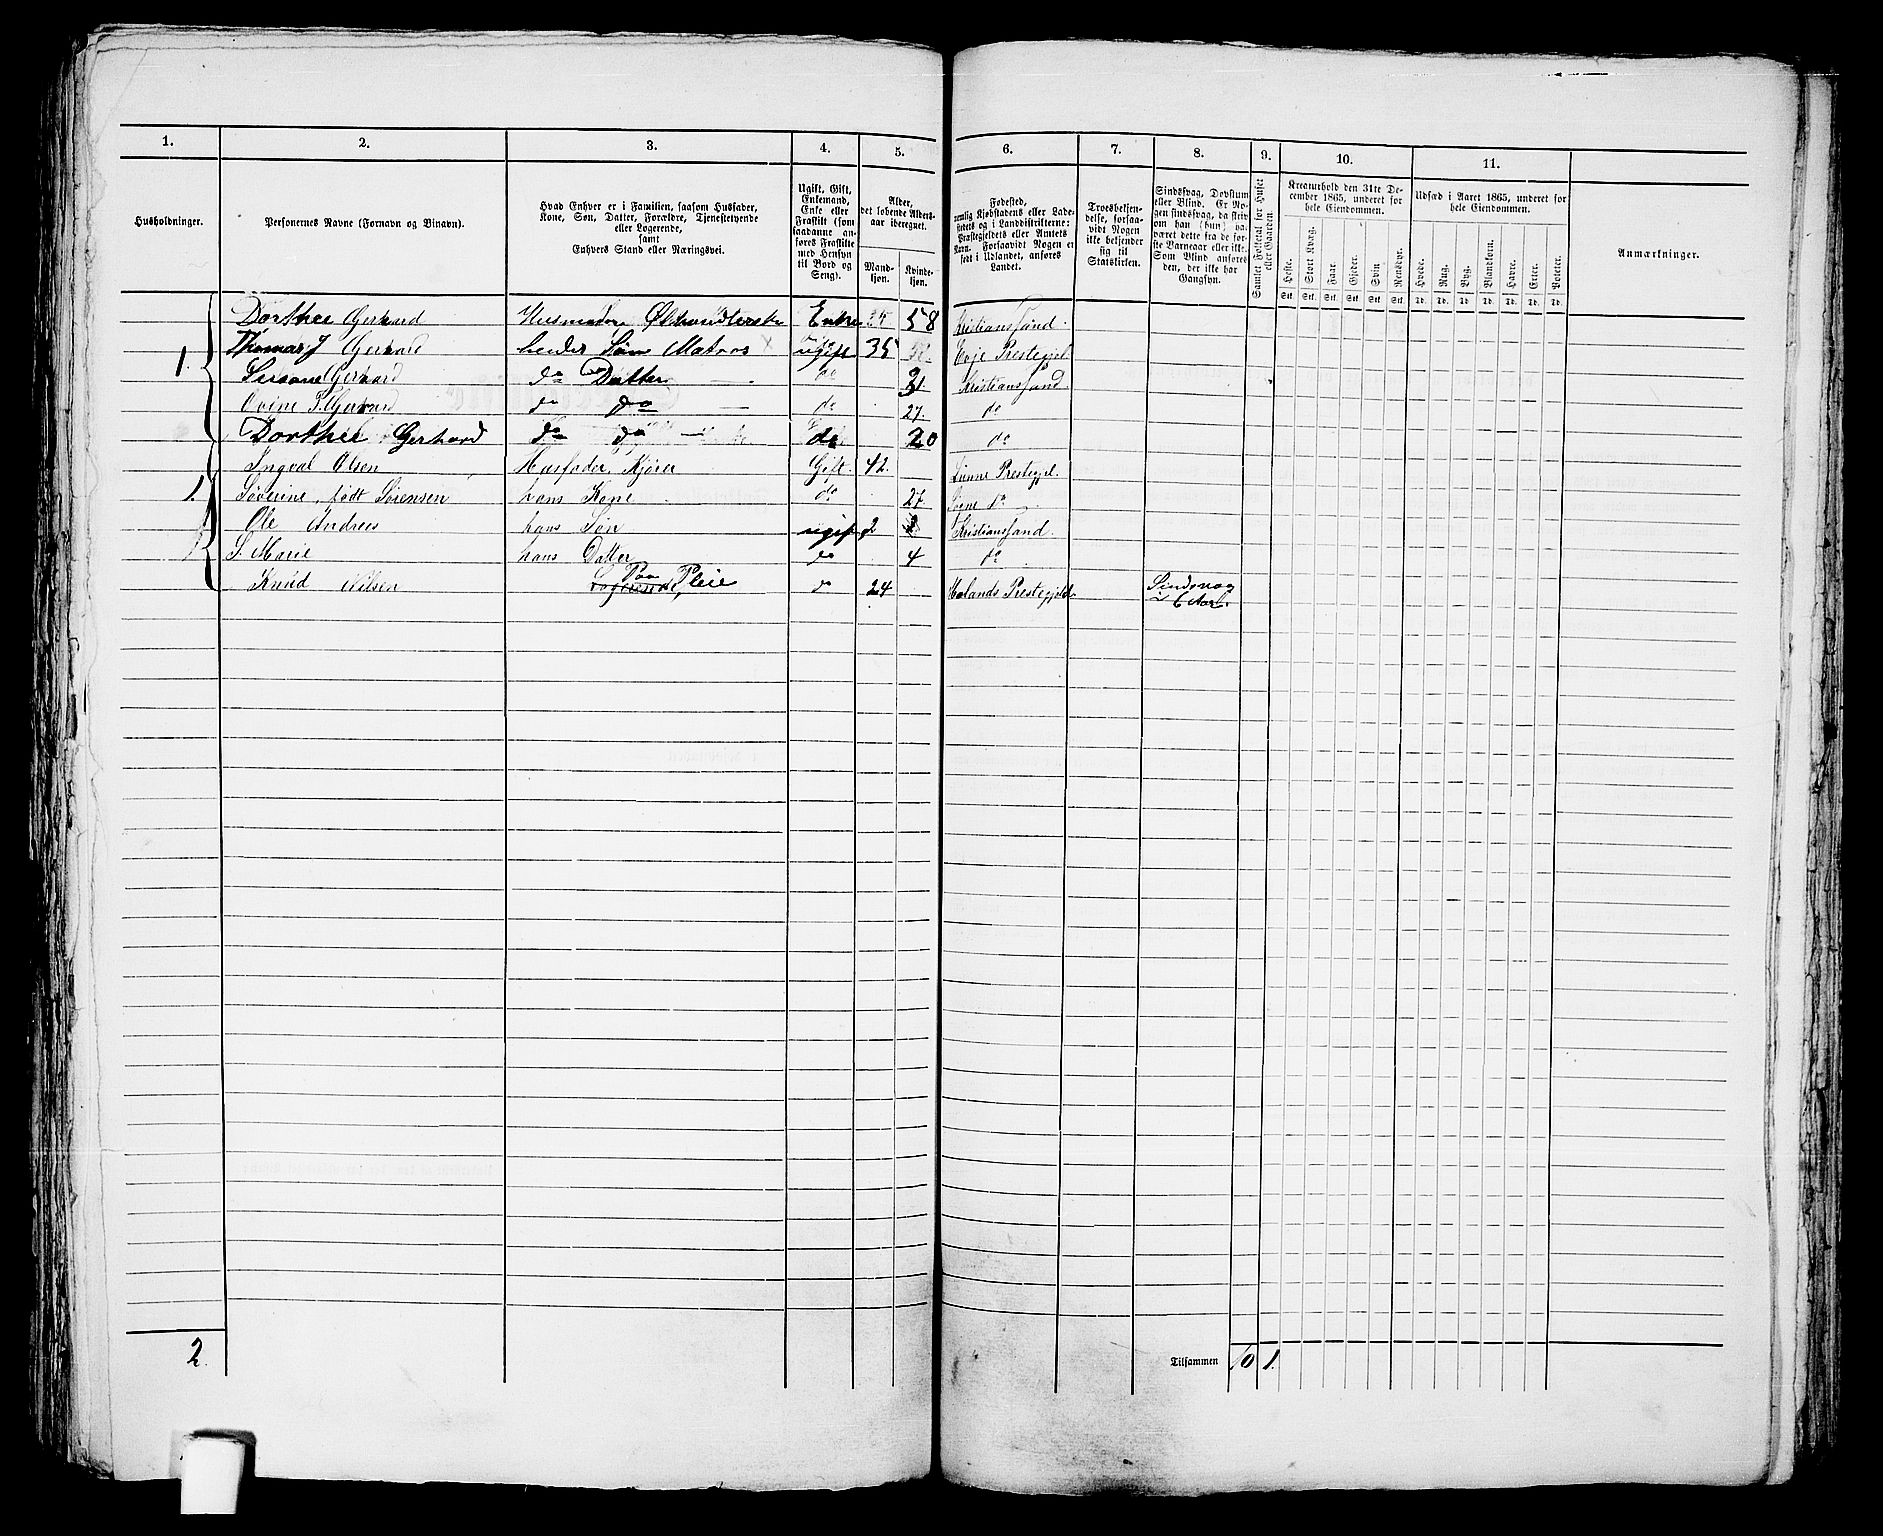 1. 2. 3. 4. 5. 6. 7. 8. 9. 10. 11.
Husholdninger.
Personernes Navne (Fornavn og Binavn).
Hvad Enhver er i Familien, saasom Husfader,
Kone, Søn, Datter, Forældre, Tjenestetyende
eller Logerende,
samt
Enhvers Stand eller Næringsvei.
Ugift, Gift,
Enkemand,
Enke eller
Fraskilt (som
saadanne an-
føres Fraskilte
med Hensyn
til Bord og
Seng).
Alder,
det løbende Alders-
aar iberegnet.
Mand-
kjøn.
Kvinde-
kjøn.
Fødested,
nemlig Kjøbstadens eller Lade-
stedets og i Landdistrikterne:
Præstegjeldets eller Amtets
Navn. Forsaavidt Nogen er
født i Udlandet, anføres
Landet.
Troesbekjen-
delse, forsaa-
vidt Nogen
ikke bekjender
sig til
Statskirken.
Sindssvag, Døvstum
eller Blind. Er No-
gen sindssvag, da skriv
om han (hun) va-
været dette fra de før-
ste Barneaar eller ikke.
Som Blind anføres
den, der ikke har
Gangsyn.
Samlet Folketal for Huset
eller Gaarden.
Kreaturhold den 31te De-
cember 1865, underet for
hele Eiendommen.
Heste. Stort Kvæg. Faar. Gjeder. Svin Rensdyr.
Stk. Stk. Stk. Stk. Stk. Stk.
Udsæd i Aaret 1865, underet for
hele Eiendommen.
Hvede. Rug. Byg. Blandkorn. Havre. Erter. Poteter.
Td. Td. Td. Td. Td. Td. Td.
Anmærkninger.
Dorthee Gerhard Husmoder Ølhandlerske Enke 58 Kristianssand.
1. Thomas J Gerhard hendes Søn Matros x ugift 35 Evje Prestegjel
Gerhard do Datter do 31. Kristianssand
Gerhard do do do 27. do
Dorthee Gerhard do do do 20 do
Ingval Olsen Husfader, Kjører Gift. 42. Prestegjel.
1. Søverine, født Sørensen hans Kone do 27 Søgne do
Ole Andreas hans Søn ugift 2 Kristianssand.
S. Marie hans Datter do 4 do
Knud Nilsen Logerende, Paa Pleie do 24 Holands Prestegjeld Sindsvag
2. Tilsammen 10 1.